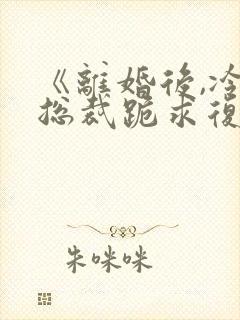 《離婚後,冷
總裁跪求復
朱咪咪